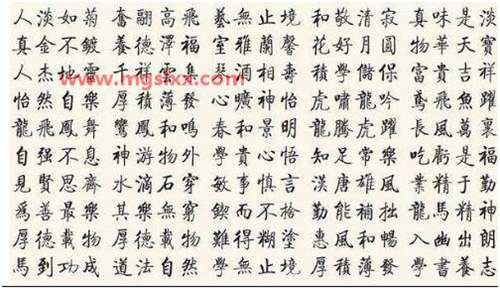 人淡如菊 奮翮高飛 藝無止境 和敬清寂 真味是淡
真金不鍍 養德澤福 室雅蘭馨 花好月圓 物華天寶
人杰地靈 千祥雲集 酒相壽 積學儲保 富貴吉祥
怡然自樂 厚積薄發 心曠神怡 虎嘯龍吟 鳶飛魚躍
龍飛鳳舞 鸞鳳和鳴 春和景明 龍騰虎躍 長風萬裏
自强不息 神游物外 學貴心悟 知足常樂 吃虧是福
見賢思齊 水滴石穿 敏事慎言 漢唐雄風 業精于勤
爲善最樂 其樂無窮 鍥而不捨 勤能補拙 龍馬精神
厚德載物 厚德載物 難得糊塗 惠風和暢 入幽出朗
馬到功成 道法自然 學無止境 厚積薄發 學書養志
www.mgslxx.com